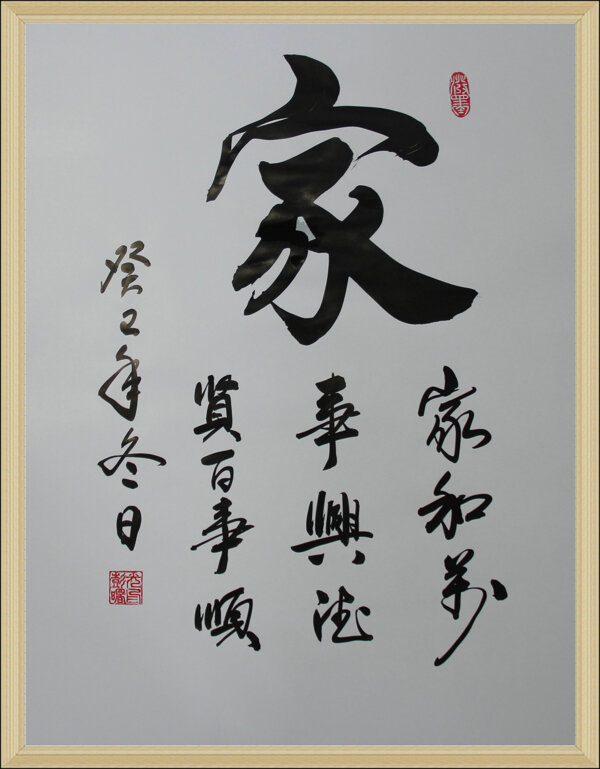 家
家和萬
事興德
賢百事順
癸巳年冬日